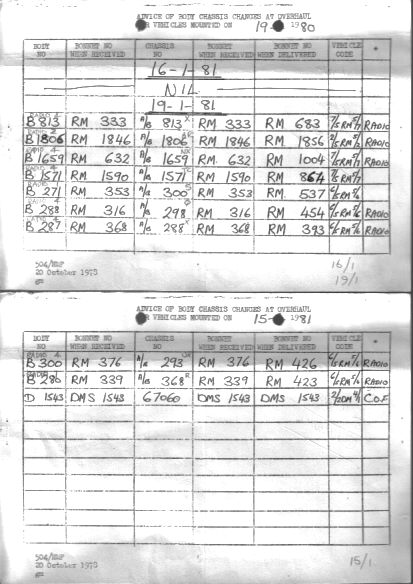 ADVICE OF BODY CHASSIS CHANGES AT OVERHAUL
VEHICLES MOUNTED ON 19 1980
BODY NO BONNET NO WHEN RECEIVED CHASSIS NO BONNET WHEN RECEIVED BONNET NO WHEN DELIVERED VEHICLE CODE
16-1-81
NIL
19-1-81
B 813 RM 333 A/B 813 RM 333 RM 683 7/5RM5/7 RADIO
B 1806 RM 1846 A/B 1806 RM 1846 RM 1856 RADIO
B 1659 RM 632 A/B 1659 RM 632 RM 1004 RADIO
B 1571 RM 1590 A/B 1571 RM 1590 RM 864
B 271 RM 353 A/B 300 RM 353 RM 537
B 288 RM 316 A/B 298 RM 316 RM 454 RADIO
B 287 RM 368 A/B 288 RM 368 RM 393 RADIO
504/
20 October 1978
16/1
19/1
ADVICE OF BODY CHASSIS CHANGES AT OVERHAUL
VEHICLES MOUNTED ON 15 1981
BODY NO BONNET NO WHEN RECEIVED CHASSIS NO BONNET WHEN RECEIVED BONNET NO WHEN DELIVERED VEHICLE CODE
RADIO 4
B 300 RM 376 A/B 293 RM 376 RM 426 RADIO
B 286 RM 339 A/B 368 RM 339 RM 423 RADIO
D 1543 DMS 1543 67060 DMS 1543 DMS 1543 C.O.F
504/
20 October 1978
15/1